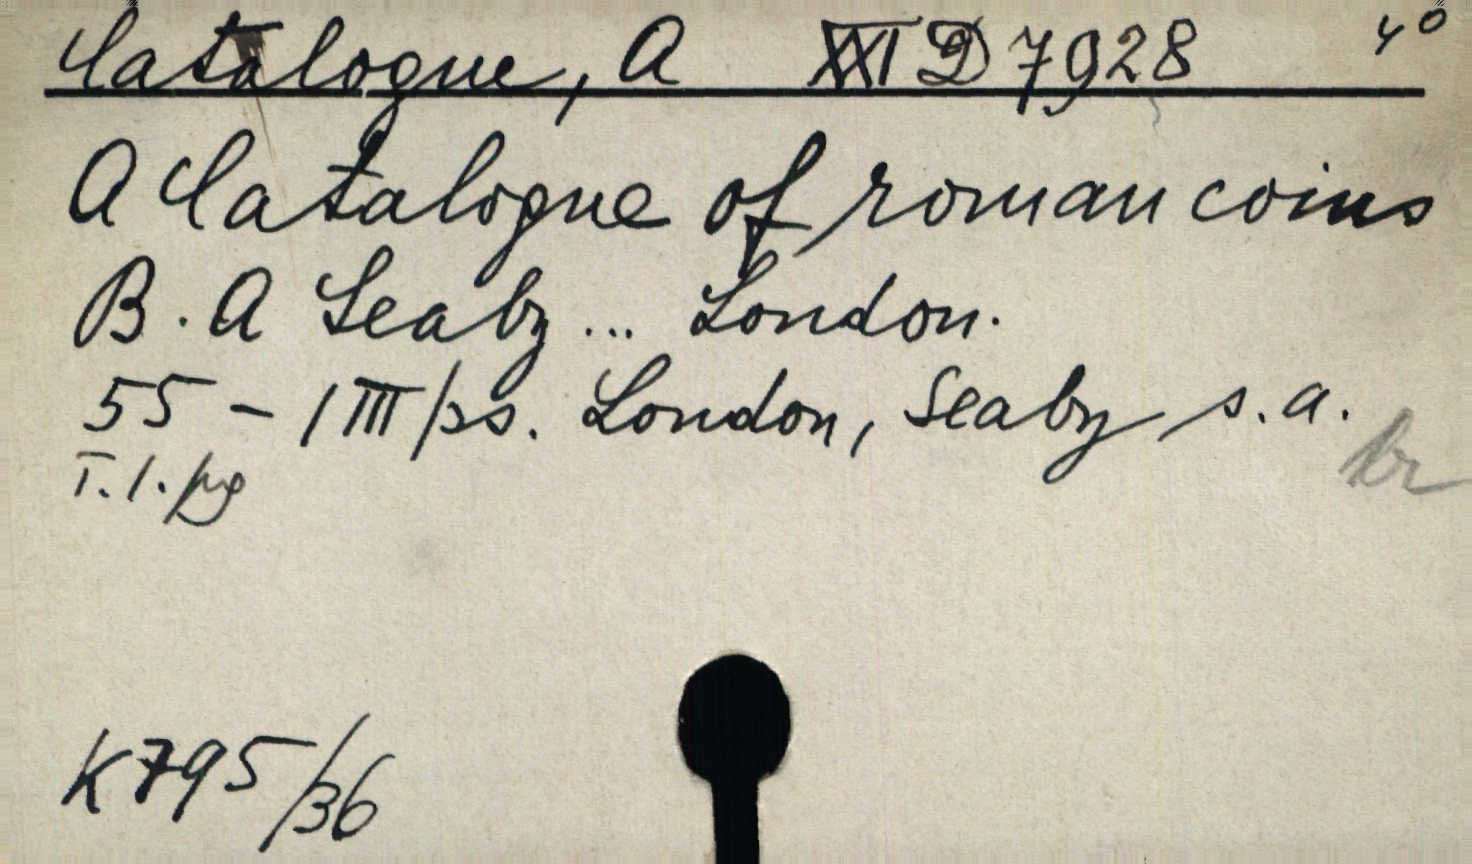 Catalogue, A XXI D 7928 4°
A Catalogue of roman coins
B. A Seaby ... London.
55 - 1 III ps. London, Seaby s. a.
T. 1. pg
br
K 795/36